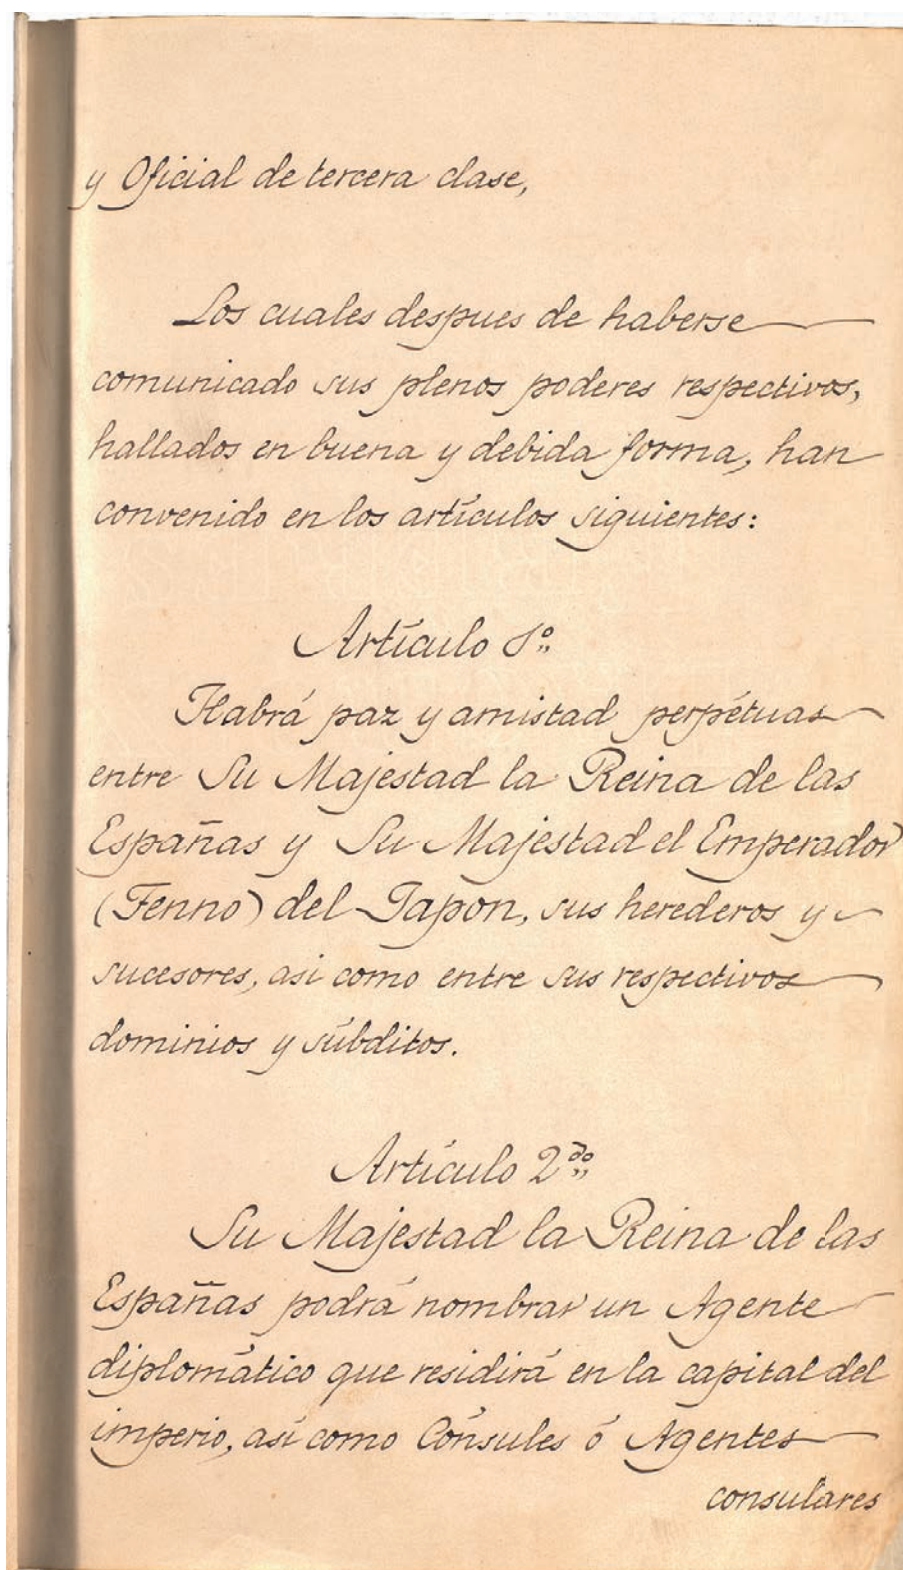 y Oficial de tercera clase,
Los cuales despues de haberse
comunicado sus plenos poderes respectivos,
hallados en buena y debida forma, han
convenido en los artículos siguientes:
Artículo 1º
Habrá paz y amistad perpétuas
entre Su Majestad la Reina de las
Españas y Su Majestad el Emperador
(Tenno) del Japon, sus herederos y
sucesores, asi como entre sus respectivos
dominios y súbditos.
Artículo 2do
Su Majestad la Reina de las
Españas podrá nombrar un Agente
diplomático que residirá en la capital del
imperio, así como Cónsules ó Agentes
consulares